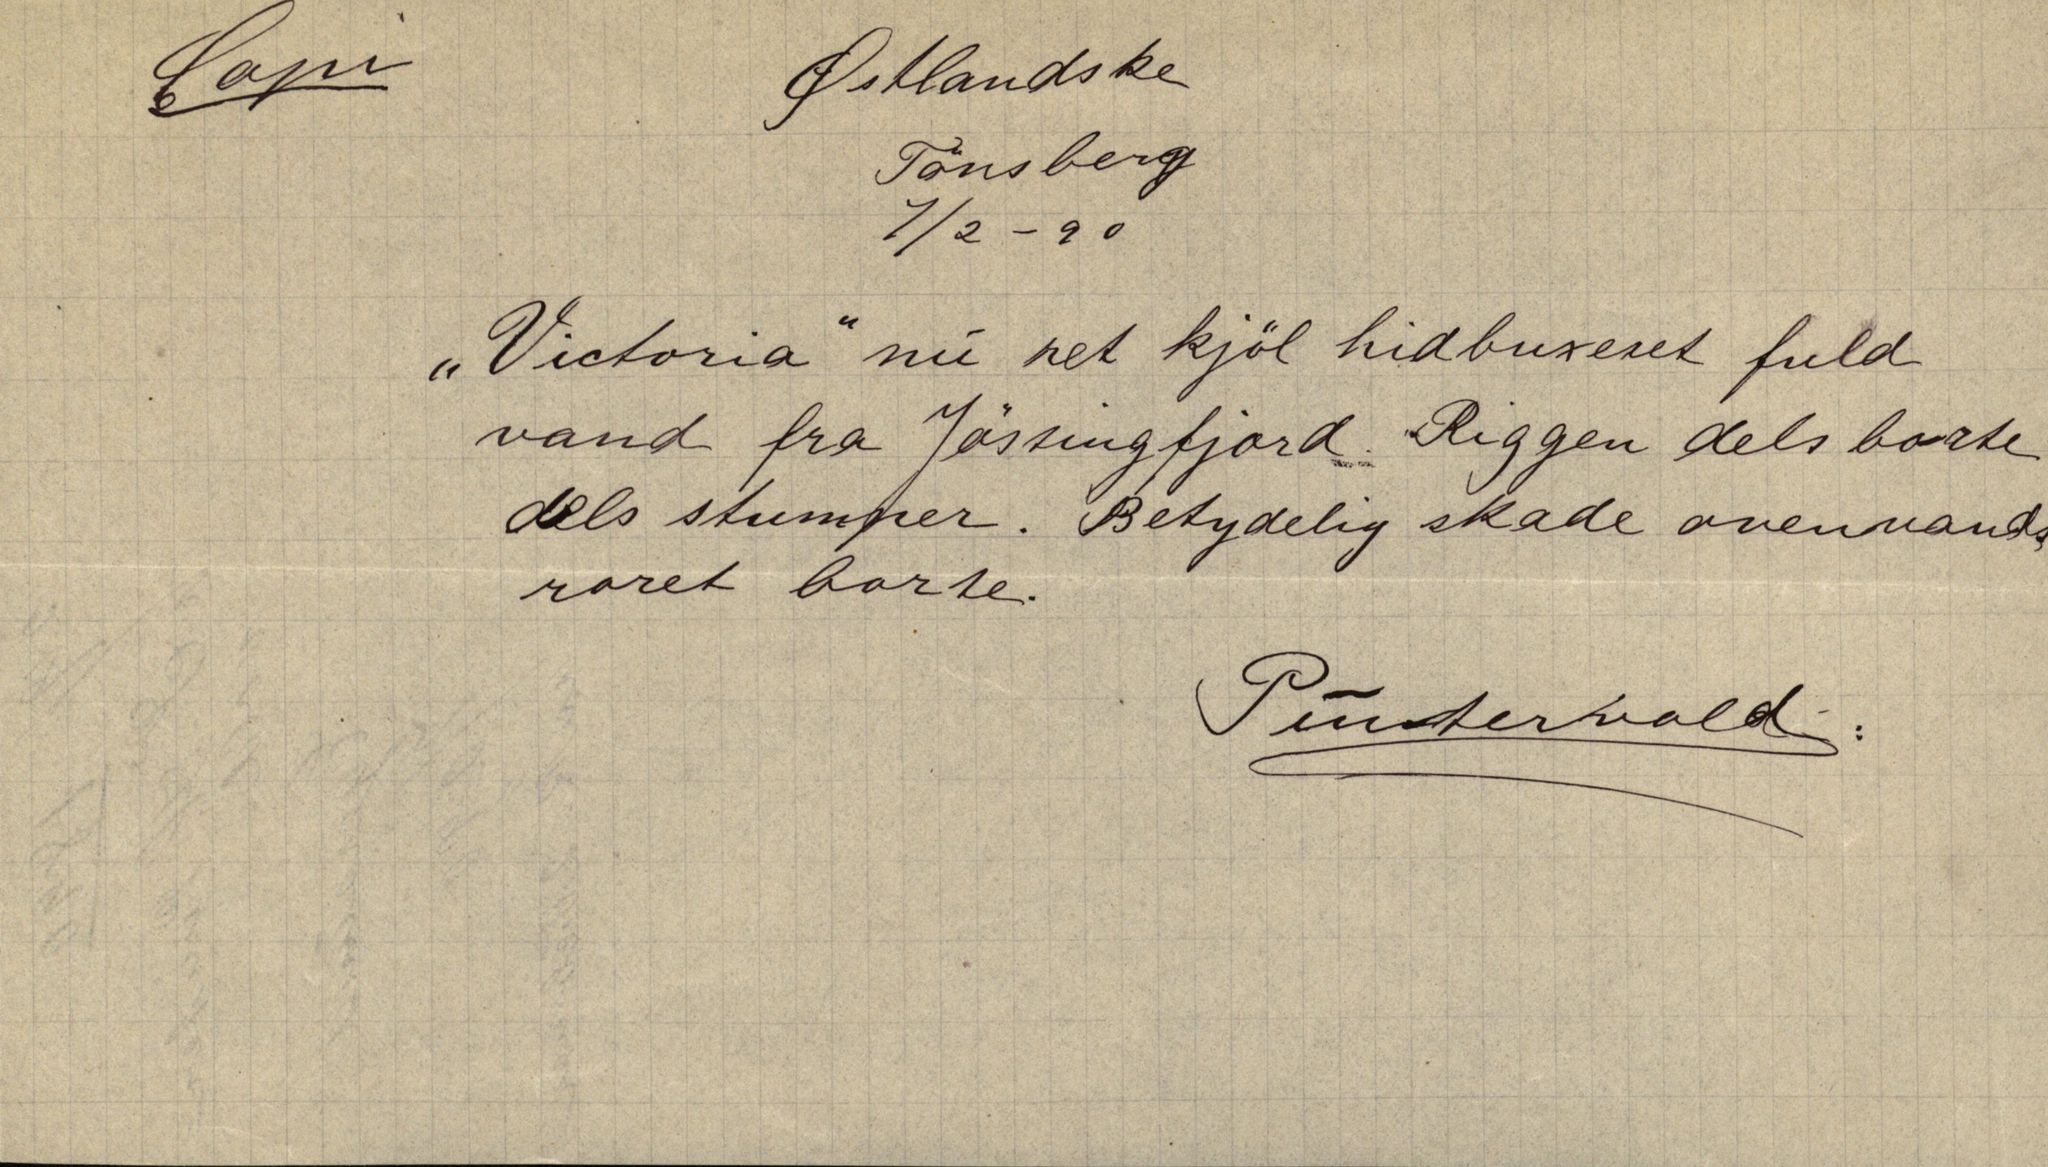 Copi
Østlandske
Tönsberg
7/2 - 90
„Victoria“ nú ret kjöl hidbuxeret fuld
vand fra Jössingfjord. Riggen dels borte
dels stumper. Betydelig skade ovenvands,
roret borte.
Pünterwald